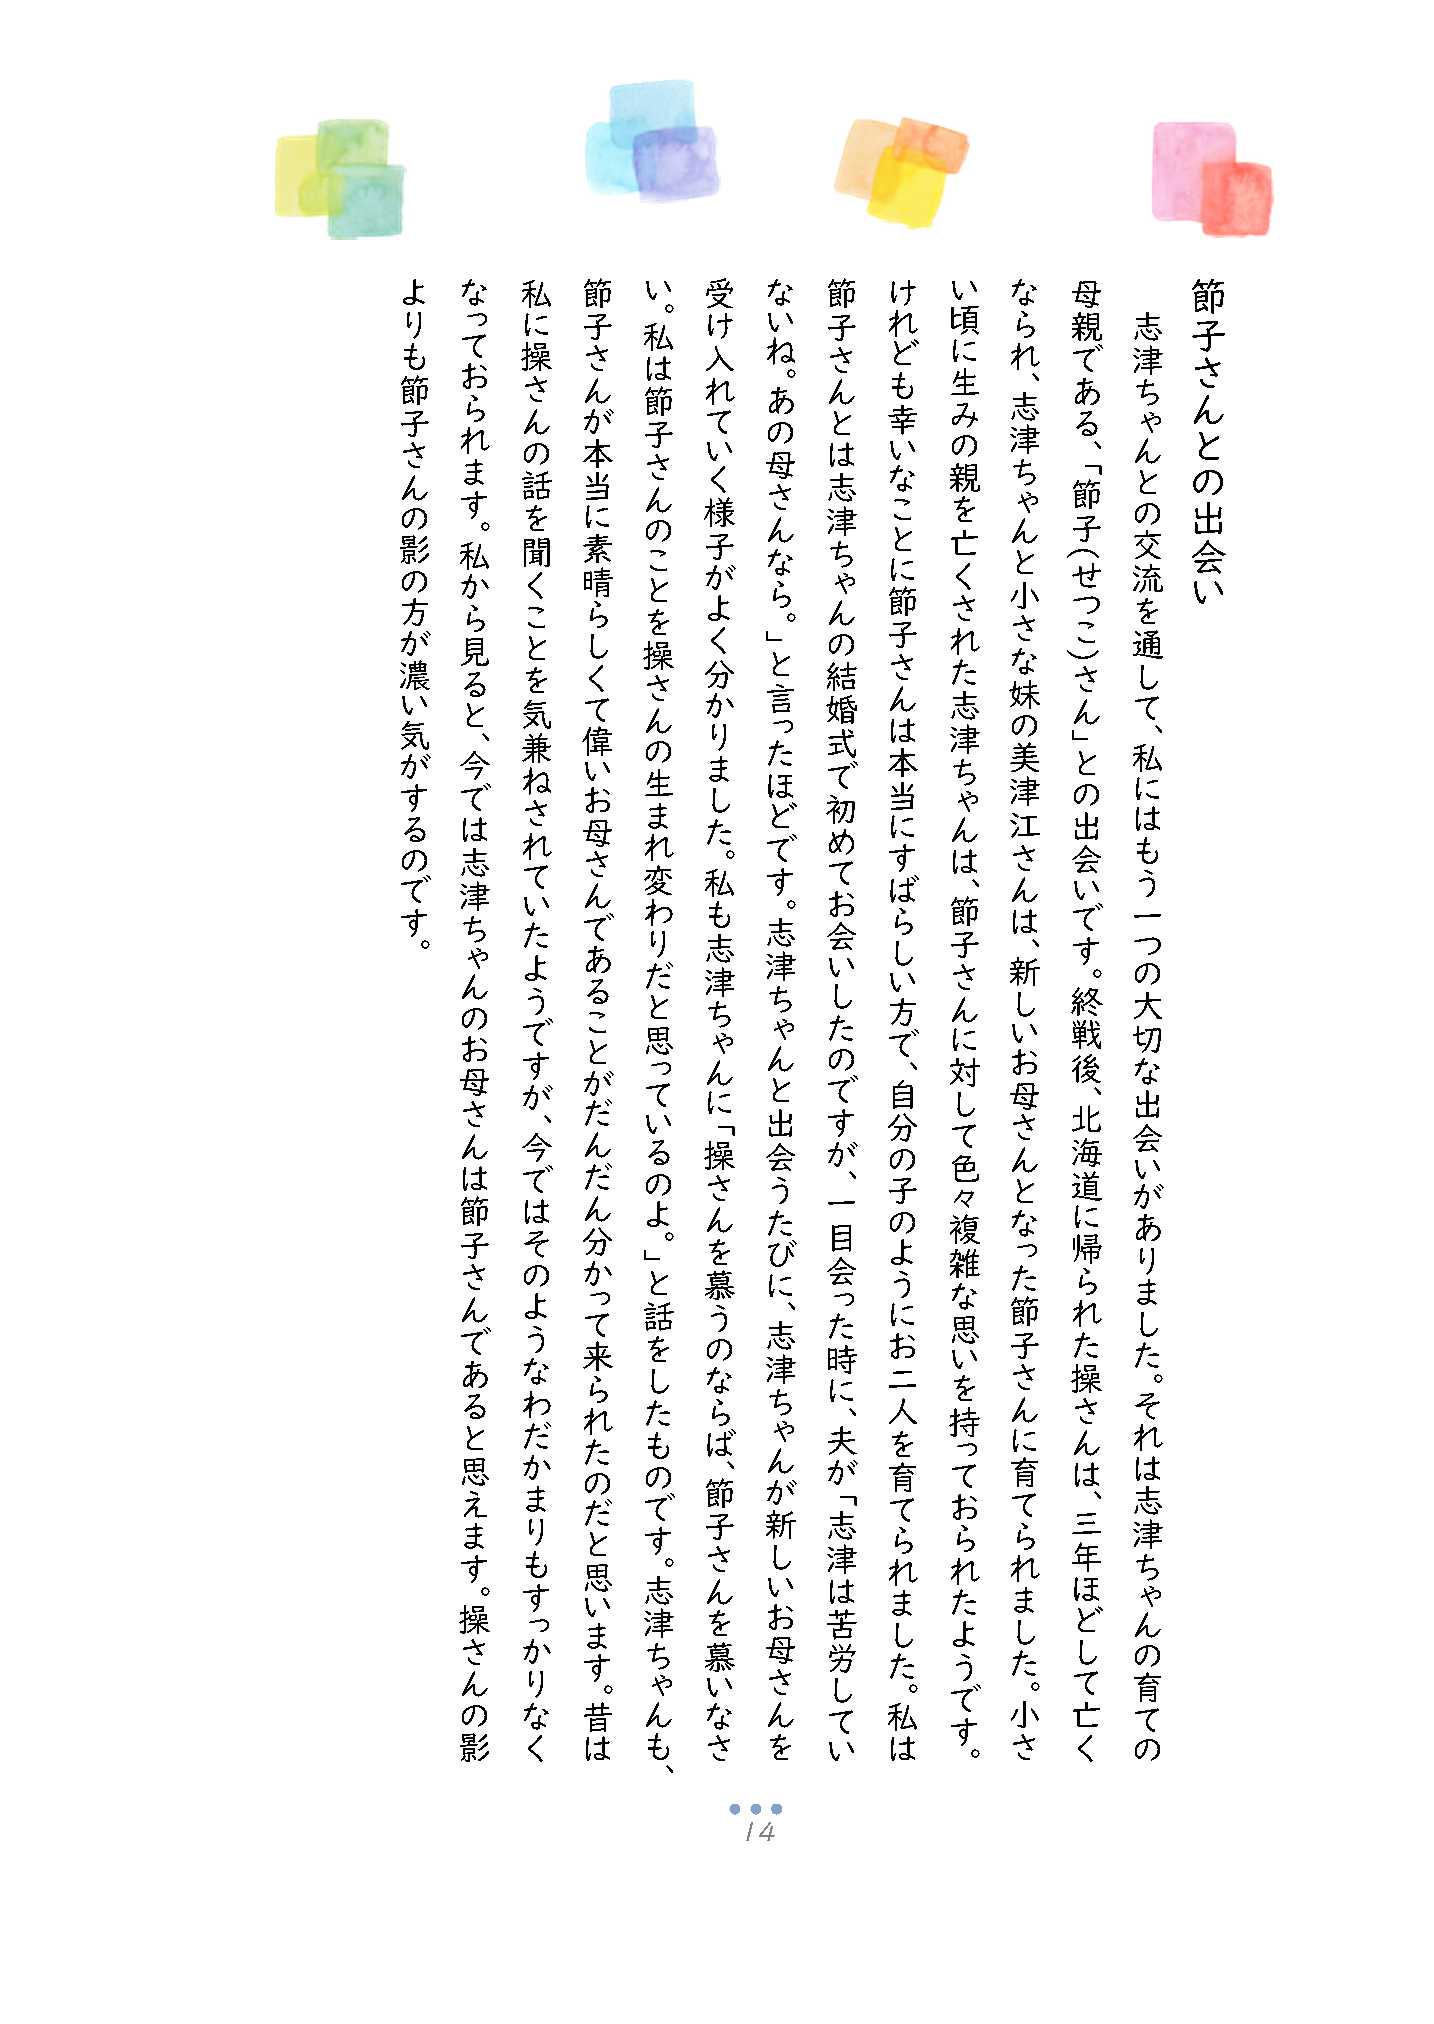 節子さんとの出会い
志津ちゃんとの交流を通して、私にはもう一つの大切な出会いがありました。それは志津ちゃんの育ての
母親である、「節子(せつこ)さん」との出会いです。終戦後、北海道に帰られた操さんは、三年ほどして亡く
なられ、志津ちゃんと小さな妹の美津江さんは、新しいお母さんとなった節子さんに育てられました。小さ
い頃に生みの親を亡くされた志津ちゃんは、節子さんに対して色々複雑な思いを持っておられたようです。
けれども幸いなことに節子さんは本当にすばらしい方で、自分の子のようにお二人を育てられました。私は
節子さんとは志津ちゃんの結婚式で初めてお会いしたのですが、一目会った時に、夫が「志津は苦労してい
ないね。あの母さんなら。」と言ったほどです。志津ちゃんと出会うたびに、志津ちゃんが新しいお母さんを
受け入れていく様子がよく分かりました。私も志津ちゃんに「操さんを慕うのならば、節子さんを慕いなさ
い。私は節子さんのことを操さんの生まれ変わりだと思っているのよ。」と話をしたものです。志津ちゃんも、
節子さんが本当に素晴らしくて偉いお母さんであることがだんだん分かって来られたのだと思います。昔は
私に操さんの話を聞くことを気兼ねされていたようですが、今ではそのようなわだかまりもすっかりなく
なっておられます。私から見ると、今では志津ちゃんのお母さんは節子さんであると思えます。操さんの影
よりも節子さんの影の方が濃い気がするのです。
14